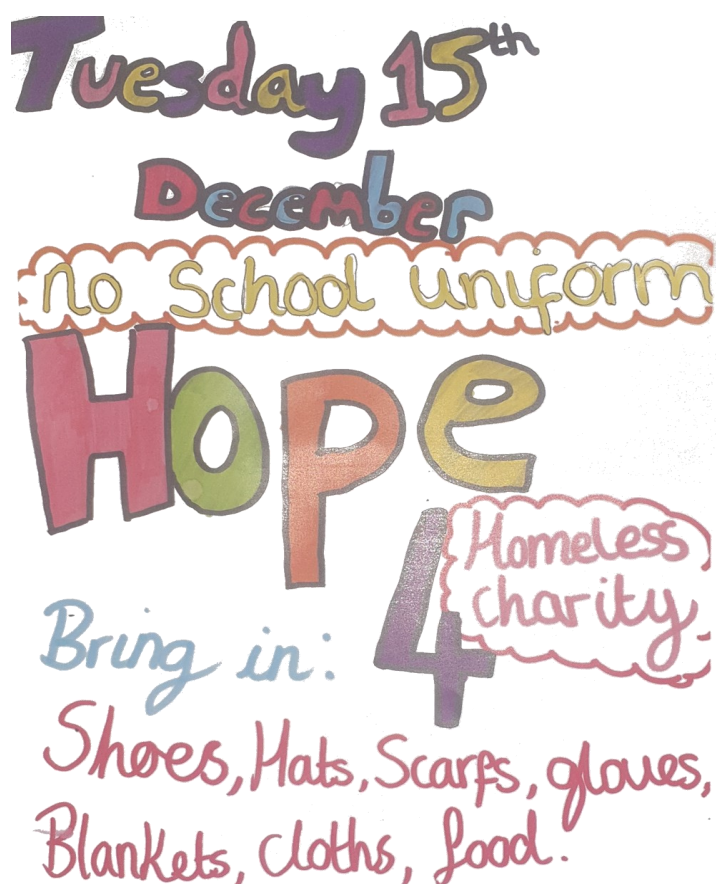 Tuesday 15th
December
no School uniform
Hope
4
Homeless
charity
Bring in:
Shoes, Hats, Scarfs, gloves,
Blankets, cloths, food.